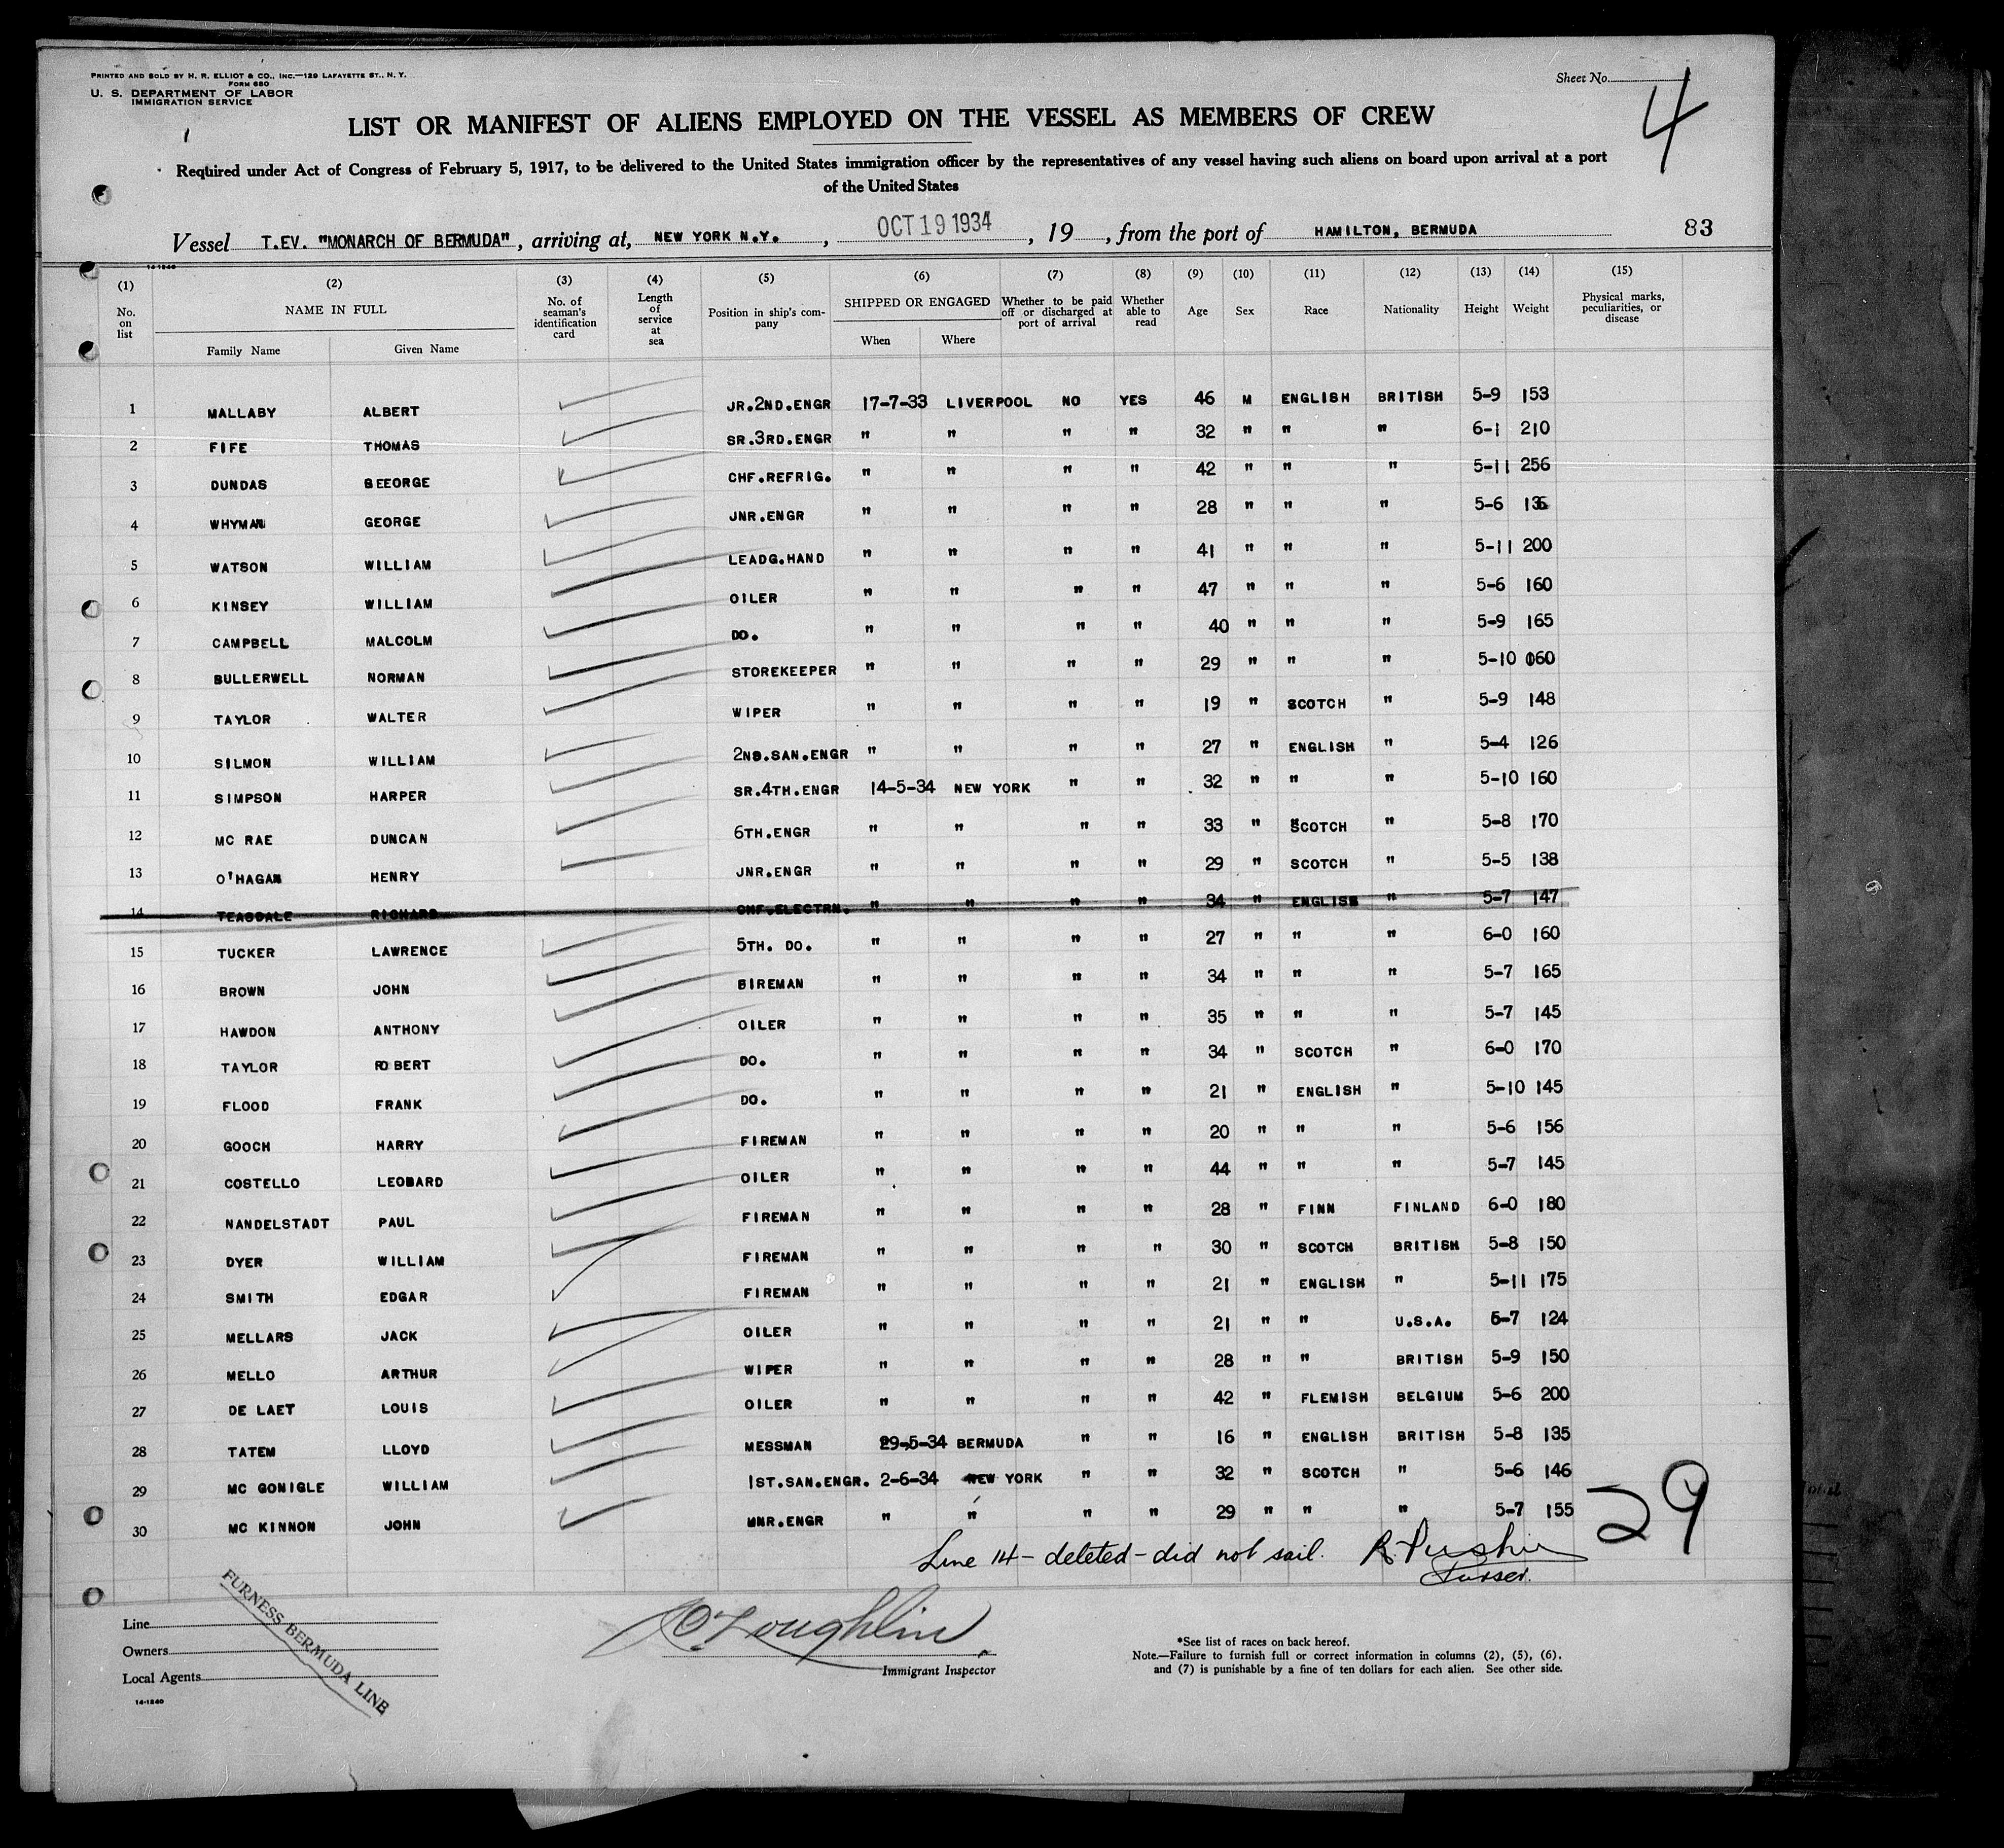 PRINTED AND SOLD BY H. R. ELLIOT & CO., INC.—129 LAFAYETTE ST., N. Y.
FORM 680
U. S. DEPARTMENT OF LABOR
IMMIGRATION SERVICE
Sheet No.
4
LIST OR MANIFEST OF ALIENS EMPLOYED ON THE VESSEL AS MEMBERS OF CREW
Required under Act of Congress of February 5, 1917, to be delivered to the United States immigration officer by the representatives of any vessel having such aliens on board upon arrival at a port
of the United States
Vessel T.EV. "MONARCH OF BERMUDA", arriving at, NEW YORK N.Y., OCT 19 1934, 19 , from the port of HAMILTON, BERMUDA 83
14-1240
(1) (2) (3) (4) (5) (6) (7) (8) (9) (10) (11) (12) (13) (14) (15)
No. on list NAME IN FULL Family Name Given Name No. of seaman's identification card Length of service at sea Position in ship's company SHIPPED OR ENGAGED When Where Whether to be paid off or discharged at port of arrival Whether able to read Age Sex Race Nationality Height Weight Physical marks, peculiarities, or disease
1 MALLABY ALBERT JR.2ND.ENGR 17-7-33 LIVERPOOL NO YES 46 M ENGLISH BRITISH 5-9 153
2 FIFE THOMAS SR.3RD.ENGR " " " " 32 " " " 6-1 210
3 DUNDAS GEEORGE CHF.REFRIG. " " " " 42 " " " 5-11 256
4 WHYMAN GEORGE JNR.ENGR " " " " 28 " " " 5-6 136
5 WATSON WILLIAM LEADG.HAND " " " " 41 " " " 5-11 200
6 KINSEY WILLIAM OILER " " " " 47 " " " 5-6 160
7 CAMPBELL MALCOLM DO. " " " " 40 " " " 5-9 165
8 BULLERWELL NORMAN STOREKEEPER " " " " 29 " " " 5-10 060
9 TAYLOR WALTER WIPER " " " " 19 " SCOTCH " 5-9 148
10 SILMON WILLIAM 2ND.SAN.ENGR " " " " 27 " ENGLISH " 5-4 126
11 SIMPSON HARPER SR.4TH.ENGR 14-5-34 NEW YORK " " 32 " " " 5-10 160
12 MC RAE DUNCAN 6TH.ENGR " " " " 33 " SCOTCH " 5-8 170
13 O'HAGAN HENRY JNR.ENGR " " " " 29 " SCOTCH " 5-5 138
14 TEASDALE RICHARD CHF.ELECTRN. " " " " 34 " ENGLISH " 5-7 147
15 TUCKER LAWRENCE 5TH. DO. " " " " 27 " " " 6-0 160
16 BROWN JOHN BIREMAN " " " " 34 " " " 5-7 165
17 HAWDON ANTHONY OILER " " " " 35 " " " 5-7 145
18 TAYLOR ROBERT DO. " " " " 34 " SCOTCH " 6-0 170
19 FLOOD FRANK DO. " " " " 21 " ENGLISH " 5-10 145
20 GOOCH HARRY FIREMAN " " " " 20 " " " 5-6 156
21 COSTELLO LEOBARD OILER " " " " 44 " " " 5-7 145
22 NANDELSTADT PAUL FIREMAN " " " " 28 " FINN FINLAND 6-0 180
23 DYER WILLIAM FIREMAN " " " " 30 " SCOTCH BRITISH 5-8 150
24 SMITH EDGAR FIREMAN " " " " 21 " ENGLISH " 5-11 175
25 MELLARS JACK OILER " " " " 21 " " U.S.A. 5-7 124
26 MELLO ARTHUR WIPER " " " " 28 " " BRITISH 5-9 150
27 DE LAET LOUIS OILER " " " " 42 " FLEMISH BELGIUM 5-6 200
28 TATEM LLOYD MESSMAN 29-5-34 BERMUDA " " 16 " ENGLISH BRITISH 5-8 135
29 MC GONIGLE WILLIAM 1ST.SAN.ENGR. 2-6-34 NEW YORK " " 32 " SCOTCH " 5-6 146
30 MC KINNON JOHN MNR.ENGR " " " " 29 " " " 5-7 155
29
Line 14 - deleted - did not sail.
Purser.
FURNESS BERMUDA LINE
Line
Owners
Local Agents
14-1240
O'Loughlin
Immigrant Inspector
*See list of races on back hereof.
Note.—Failure to furnish full or correct information in columns (2), (5), (6),
and (7) is punishable by a fine of ten dollars for each alien. See other side.